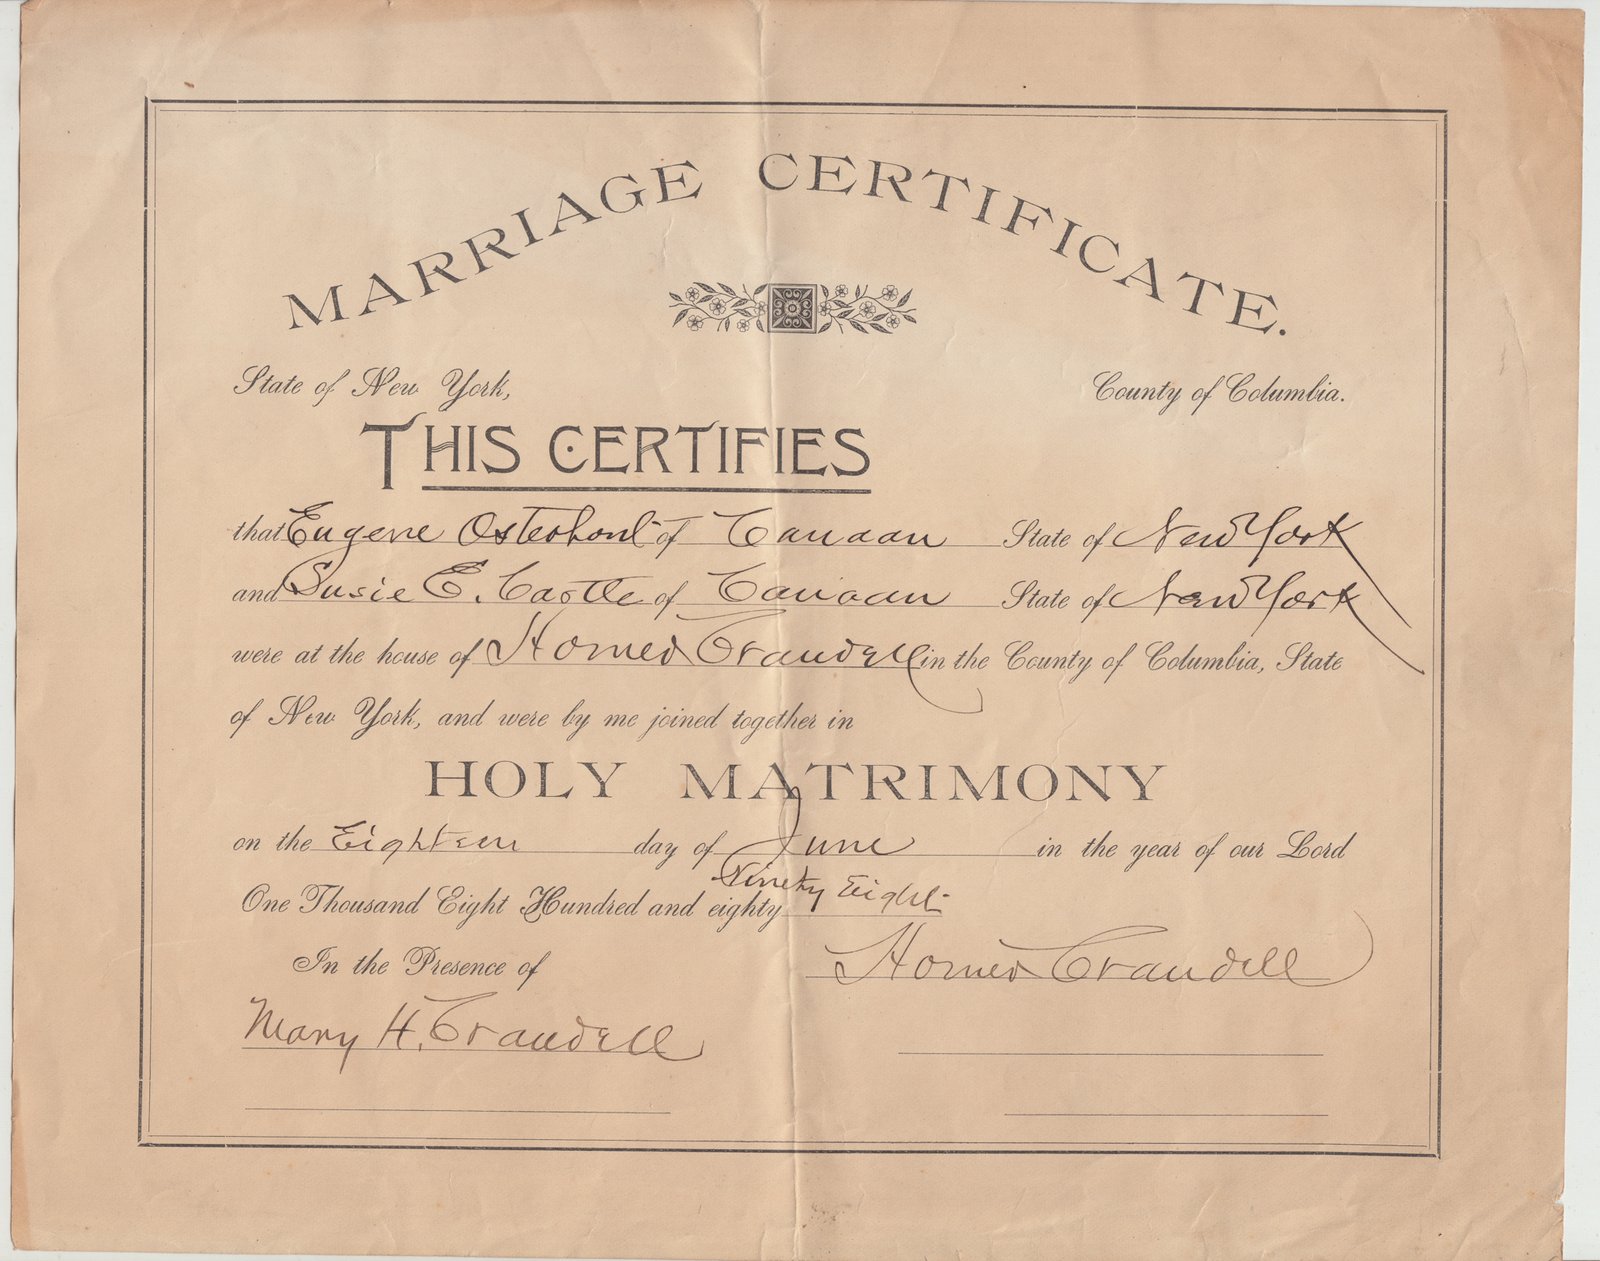 MARRIAGE CERTIFICATE.
State of New York, County of Columbia.
THIS CERTIFIES
that Eugene Osterhout of Canaan State of New York
and Susie E. Castle of Canaan State of New York
were at the house of Homer Crandell in the County of Columbia, State
of New York, and were by me joined together in
HOLY MATRIMONY
on the Eighteen day of June in the year of our Lord
Ninety Eight
One Thousand Eight Hundred and eighty
In the Presence of Homer Crandell
Mary H. Crandell